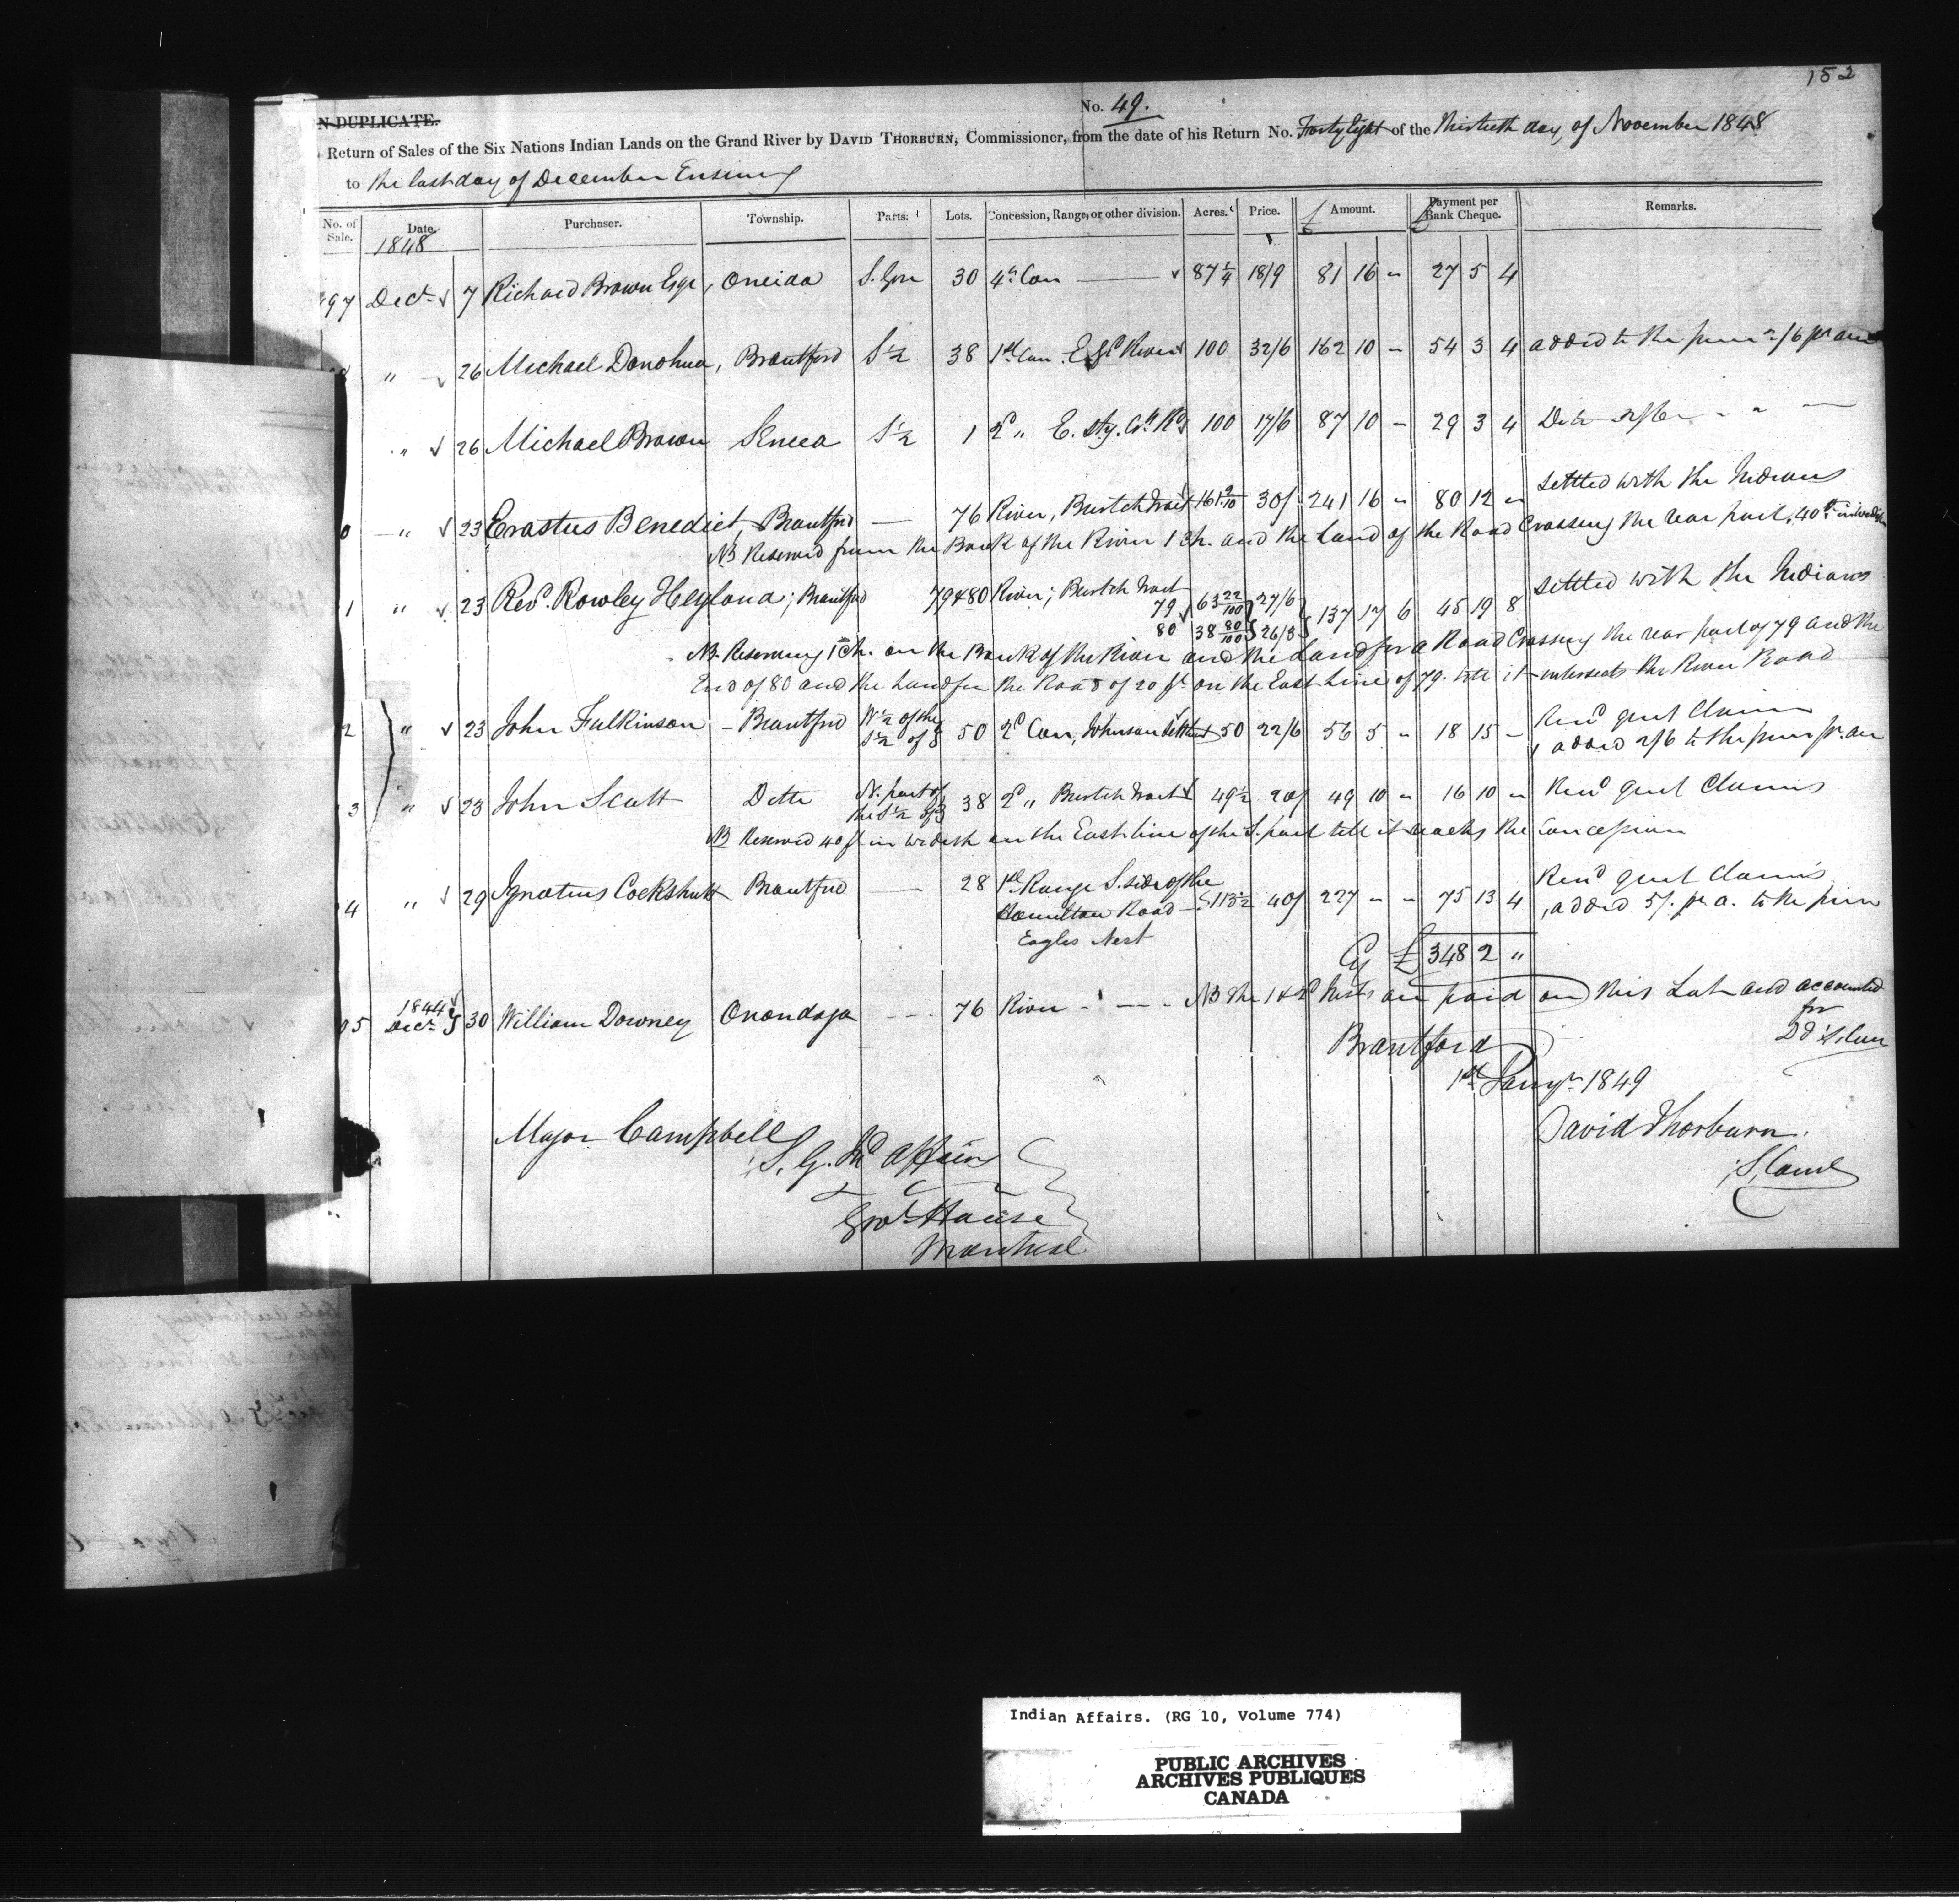 152
No. 49.
N DUPLICATE.
Return of Sales of the Six Nations Indian Lands on the Grand River by DAVID THORBURN, Commissioner, from the date of his Return No. Forty Eight of the Thirtieth day of November 1848
to the last day of December Ensuing
No. of Sale. Date. Purchaser. Township. Parts. Lots. Concession, Range, or other division. Acres. Price. £ Amount. £ Payment per Bank Cheque. Remarks.
1848
97 Decr 7 Richard Brown Esqr, Oneida S. 30 4th Con 87 1/4 18/9 81 16 " 27 5 4
8 " 26 Michael Donohua, Brantford S 1/2 38 1st Con E Gd River 100 32/6 162 10 " 54 3 4 added to the price 2/6 pr acre
" 26 Michael Brown Seneca S 1/2 1 2d " E. 100 17/6 87 10 " 29 3 4 Ditto 2/6
settled with the Indians
0 " 23 Erastus Benedict, Brantford — 76 River, Burtch Tract 161 9/10 30/ 241 16 " 80 12 "
NB Reserved from the Bank of the River 1 Ch. and the Land of the Road Crossing the rear part, 40 ft in width
settled with the Indians
1 " 23 Revd. Rowley Heyland; Brantford 79 & 80 River; Burtch Tract
79 63 22/100 27/6
80 38 80/100 26/3 137 17 6 45 19 8
NB. Reserving 1 Ch. on the Bank of the River and the Land for a Road Crossing the rear part of 79 and the
End of 80 and the Land for the Road of 20 ft on the East Line of 79. till it intersects the River Road
2 " 23 John Fulkinson – Brantford W 1/2 of the S 1/2 of 50 2d Con, Johnson Settlemt 50 22/6 56 5 " 18 15 – quit Claim
added 2/6 to the price pr. acre
3 " 23 John Scott Ditto N. part of the S 1/2 of 38 2d " Burtch Tract 49 1/2 20/ 49 10 " 16 10 " quit Claims
NB Reserved 40 ft in width on the East line of the S. part till it reaches the Concession
4 " 29 Ignatius Cockshutt Brantford — 28 1st Range S. side of the quit Claims
Hamilton Road 113 1/2 40/ 227 " " 75 13 4 added 5/. pr a. to the price
Eagles Nest
Cy £ 348 2 "
05 1844 Decr 30 William Downey Onondaga 76 River NB the 1 & 2d Insts are paid on this Lot and accounted
for
Brantford
1st Jany 1849
David Thorburn
Major Campbell
S. G. Ind Affairs
Govt House
Montreal
Indian Affairs. (RG 10, Volume 774)
PUBLIC ARCHIVES
ARCHIVES PUBLIQUES
CANADA